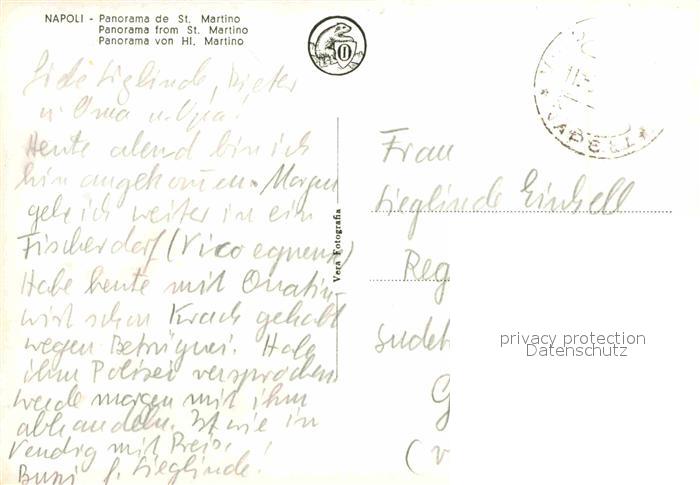 NAPOLI - Panorama de St. Martino
Panorama from St. Martino
Panorama von Hl. Martino
Liebe Sieglinde, Dieter
u. Oma u. Opa!
Heute abend bin ich
hin angekommen. Morgen
geh ich weiter in ein
Fischerdorf (Vico equense)
Habe heute mit
wirt schon Krach gehabt
wegen Betrügerei. Habe
ihm Polizei versprochen
werde morgen mit ihm
abhandeln. Ist wie in
Venedig mit Preise!
Bussi f. Sieglinde!
Vera Fotografia
O
NAPOLI
Frau
Sieglinde
Reg
sudet
G
(v
privacy protection
Datenschutz